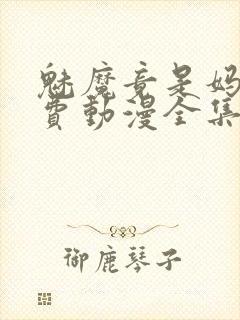 魅魔竟是妈
费動漫全集
御鹿琴子